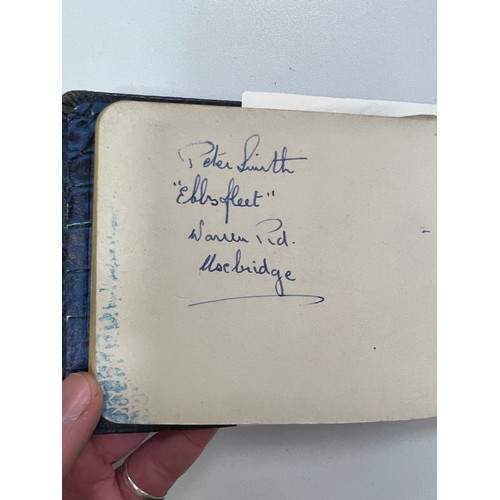 Peter Smith
"Ebbsfleet"
Warren Rd.
Uxbridge